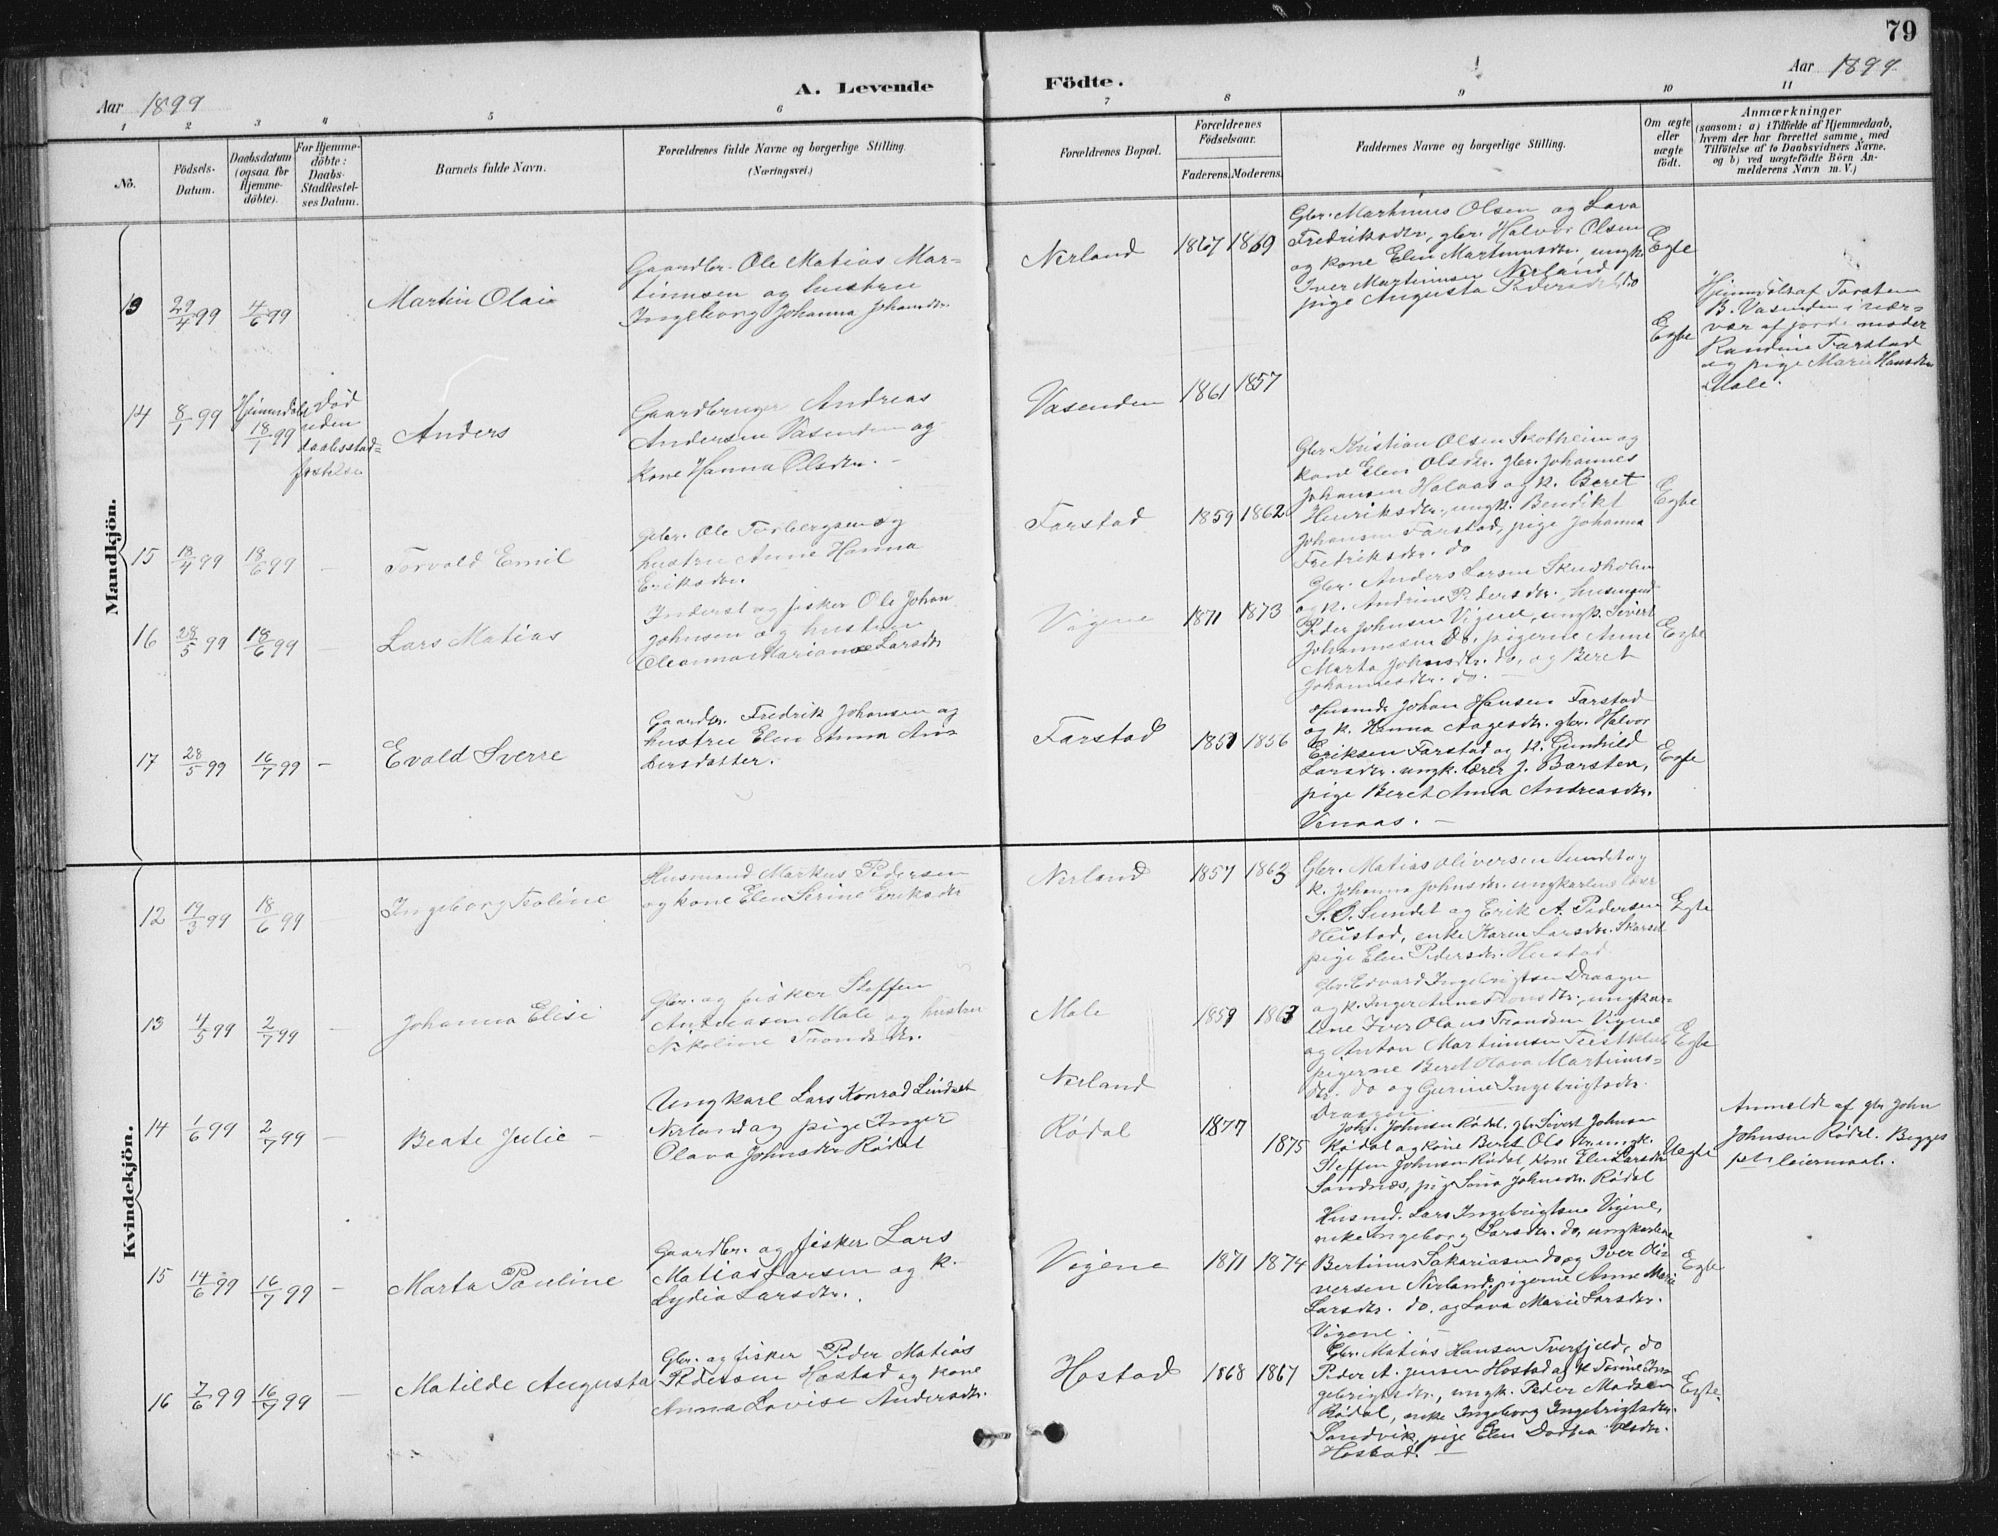 79
Aar 1899
A. Levende
Födte.
Aar 1899
1 2 3 4 5 6 7 8 9 10 11
No.
Födsels-
Datum.
Daabsdatum
(ogsaa for
Hjemme-
döbte).
For Hjemme-
döbte:
Daabs-
Stadfæstel-
ses Datum.
Barnets fulde Navn.
Forældrenes fulde Navne og borgerlige Stilling.
(Næringsvei.)
Forældrenes Bopæl.
Forældrenes
Födselsaar.
Faderens. Moderens.
Faddernes Navne og borgerlige Stilling.
Om ægte
eller
uægte
födt.
Anmærkninger
(saasom: a) i Tilfælde af Hjemmedaab,
hvem der har forrettet samme, med
Tilföielse af to Daabsvidners Navne,
og b) ved uægtefödte Börn An-
melderens Navn m. V.)
Mandkjön.
13 29/4 99 4/6 99
Martin Olai
Gaardbr. Ole Matias Mar-
tinusen og hustru
Ingeborg Johanna Johansdr.
Nerland 1867 1869
Gbr. Martinus Olsen og Lava
Fredriksdr., gbr. Halvor Olsen
og kone Elen Martinusdr., ungk.
Iver Martinusen Nerland,
pige Augusta Pedersdr. do
Egte
14 8/1 99
Hjemmdöbt
18/1 99
Död
uden
daabsstad-
fæstelse
Anders
Gaardbruger Andreas
Andersen Vasenden og
kone Hanna Olsdr. -
Vasenden 1861 1857
Egte
Hjemmdöbt af Torsten
B. Vasenden i nær-
vær af jordemoder
Randine Farstad
og pige Marie Hansdr.
Male.
15 18/4 99 18/6 99 -
Torvald Emil
Gbr. Ole Torbergsen og
hustru Anne Hanna
Eriksdr.
Farstad 1859 1862
Gbr. Kristian Olsen Skotheim og
kone Elen Olsdr. gbr. Johannes
Johansen Halaas og k. Beret
Henriksdr., ungk. Bendikt
Johansen Farstad, pige Johanna
Fredriksdr. do
Egte
16 28/5 99 18/6 99 -
Lars Matias
Inderst og fisker Ole Johan
Johnsen og hustru
Oleanna Marianne Larsdr
Vigene 1871 1873
Gbr. Anders Larsen Skudholm
og k. Andrine Pedersdr., husmand
Peder Johnsen Vigene, ungk. Sivert
Johannesen do., pigerne Anne
Marta Johnsdr. do. og Beret
Johannesdr. do. -
Egte
17 28/5 99 16/7 99 -
Evald Sverre
Gaardbr. Fredrik Johansen og
hustru Elen Anna An-
dersdatter.
Farstad 1851 1856
Husmd. Johan Hansen Farstad
og k. Hanna Aagesdr. gbr. Halvor
Eriksen Farstad og k. Gunhild
Larsdr. ungk. lærer J. Barsten,
pige Beret Anna Andreasdr.
Venaas. -
Egte
Kvindekjön.
12 19/3 99 18/6 99 -
Ingeborg Teoline
Husmand Markus Pedersen
og kone Elen Serine Eriksdr
Nerland 1857 1863
Gbr. Matias Oliversen Sundet og
k. Johanna Johnsdr. ungkarlene lærer
S. O. Sundet og Erik A. Pedersen
Hustad, enke Karen Larsdr. Skarset
pige Elen Pedersdr. Hustad.
Egte
13 4/5 99 2/7 99 -
Johanna Elise
Gbr. og fisker Steffen
Andreasen Male og hustru
Nikoline Trondsdr.
Male 1859 1863
Gbr. Edvard Ingebrigtsen Draagen
og k. Inger Anna Tronsdr., ungkar-
lene Iver Olaus Trondsen Vigene
og Anton Martinusen
pigerne Beret Olava Martinus-
dr. do og Gurine Ingebrigtsdr.
Draagen.
Egte
14 1/6 99 2/7 99 -
Beate Julie -
Ungkarl Lars Konrad Lindset
Nerland og pige Inger
Olava Johnsdr Rødal
Nerland
Rødal 1877
1875
Joh. Johnsen Rødal, gbr Sivert Johnsen
Rødal og kone Beret Olsdr. ungk.
Steffen Johnsen Rødal, kone Elen Larsdr
Sandnæs, pige Sina Johnsdr. Rødal
Uegte
Anmeldt af gbr John
Johnsen Rødal. Begges
1ste leiermaal.
15 14/6 99 16/7 99 -
Marta Pauline
Gaardbr. og fisker Lars
Matias Larsen og k.
Lydia Larsdr.
Vigene 1871 1874
Husmd. Lars Ingebrigtsen Vigene,
enke Ingeborg Larsdr. do, ungkarlene
Bertinus Sakariasen do og Iver Oli-
versen Nerland, pigerne Anne Marie
Larsdr. do. og Lava Marie Larsdr.
Vigene. -
Egte
16 7/6 99 16/7 99 -
Matilde Augusta
Gbr. og fisker Peder Matias
Pedersen Hostad og kone
Anna Lovise Andersdr.
Hostad 1868 1867
Gbr. Matias Hansen Tverfjeld, do
Peder A. Jensen Hostad og k. Serine In-
gebrigtsdr., ungk. Peder Madsen
Rødal, enke Ingeborg Ingebrigtsdr.
Sandvik, pige Elen Dortea Olsdr.
Hostad. -
Egte.